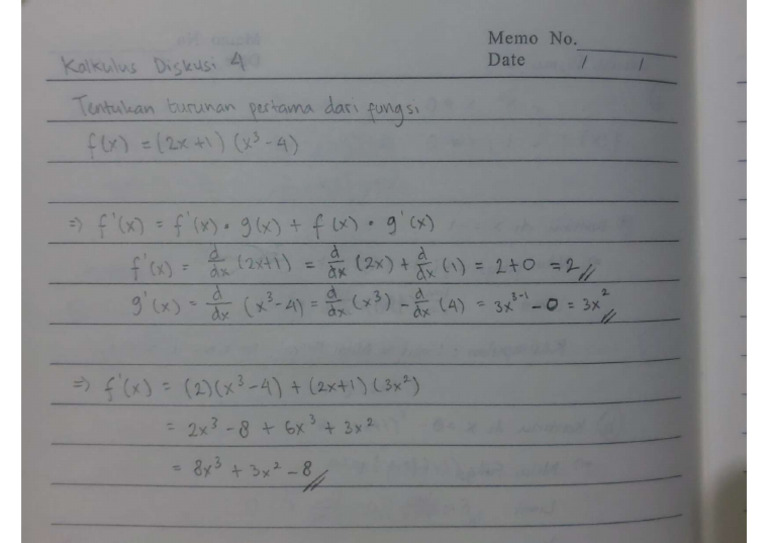 Memo No.
Date / /
Kalkulus Diskusi 4
Tentukan turunan pertama dari fungsi
f(x) = (2x+1) (x³-4)
⇒ f'(x) = f'(x) • g(x) + f(x) • g'(x)
f'(x) = d/dx (2x+1) = d/dx (2x) + d/dx (1) = 2+0 = 2//
g'(x) = d/dx (x³-4) = d/dx (x³) - d/dx (4) = 3x³⁻¹ - 0 = 3x²//
⇒ f'(x) = (2)(x³-4) + (2x+1) (3x²)
= 2x³ - 8 + 6x³ + 3x²
= 8x³ + 3x² - 8//